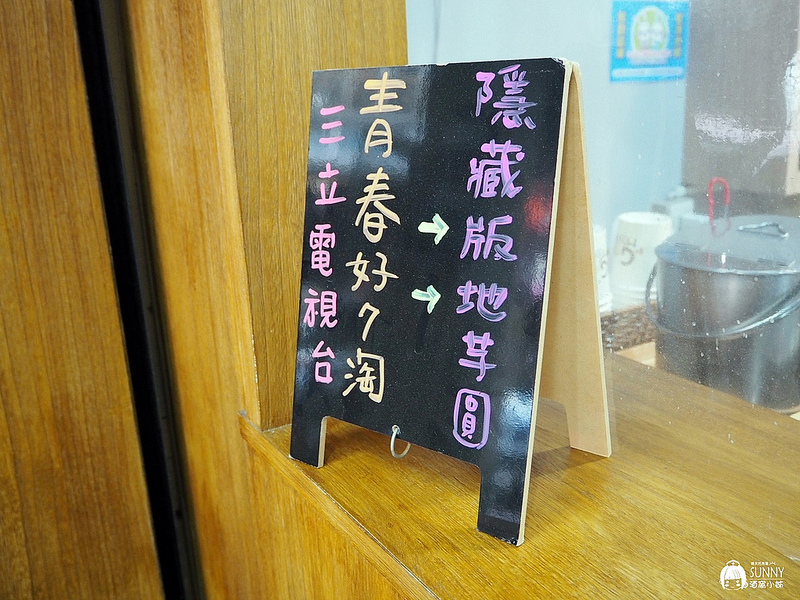 隱藏版地芋圓
→
→
青春好7淘
三立電視台
SUNNY